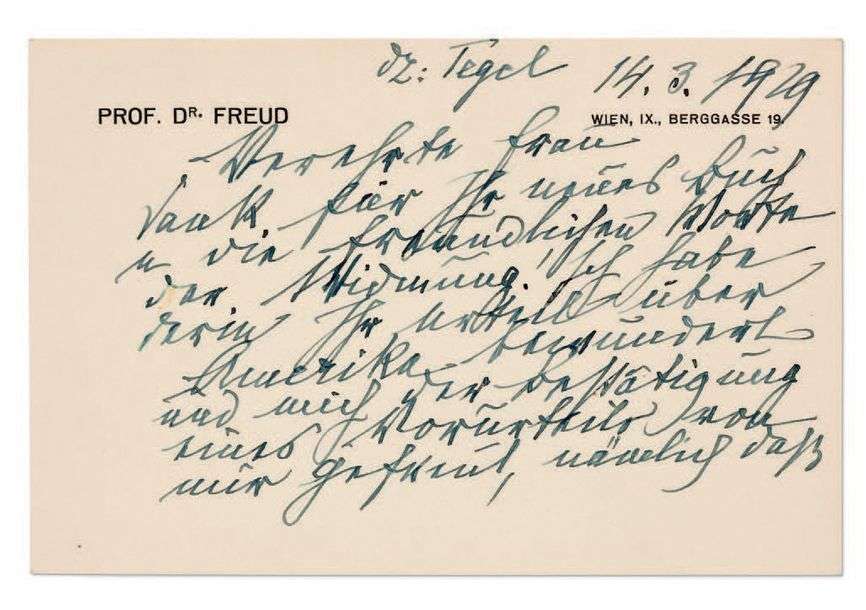 dz: Tegel 14. 3. 1929
PROF. DR. FREUD
WIEN, IX., BERGGASSE 19.
Verehrte Frau
Dank für Ihr neues Buch
u die freundlichen Worte
der Widmung. Ich habe
darin Ihr Urteil über
Amerika bewundert
und mich der Bestätigung
eines Vorurteils von
mir gefreut, nämlich daß